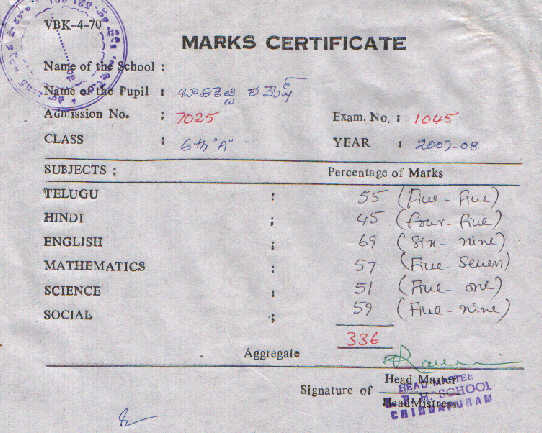 VBK-4-70
MARKS CERTIFICATE
Name of the School :
Name of the Pupil :
Admission No. : 7025 Exam. No. : 1045
CLASS : 6th "A" YEAR : 2007-08
SUBJECTS : Percentage of Marks
TELUGU : 55 (Five - Five)
HINDI : 45 (four - Five)
ENGLISH : 69 (Six - nine)
MATHEMATICS : 57 (Five Seven)
SCIENCE : 51 (Five - one)
SOCIAL : 59 (Five - nine)
Aggregate 336
Head Master
Signature of
HeadMistress
HEAD MASTER
SCHOOL